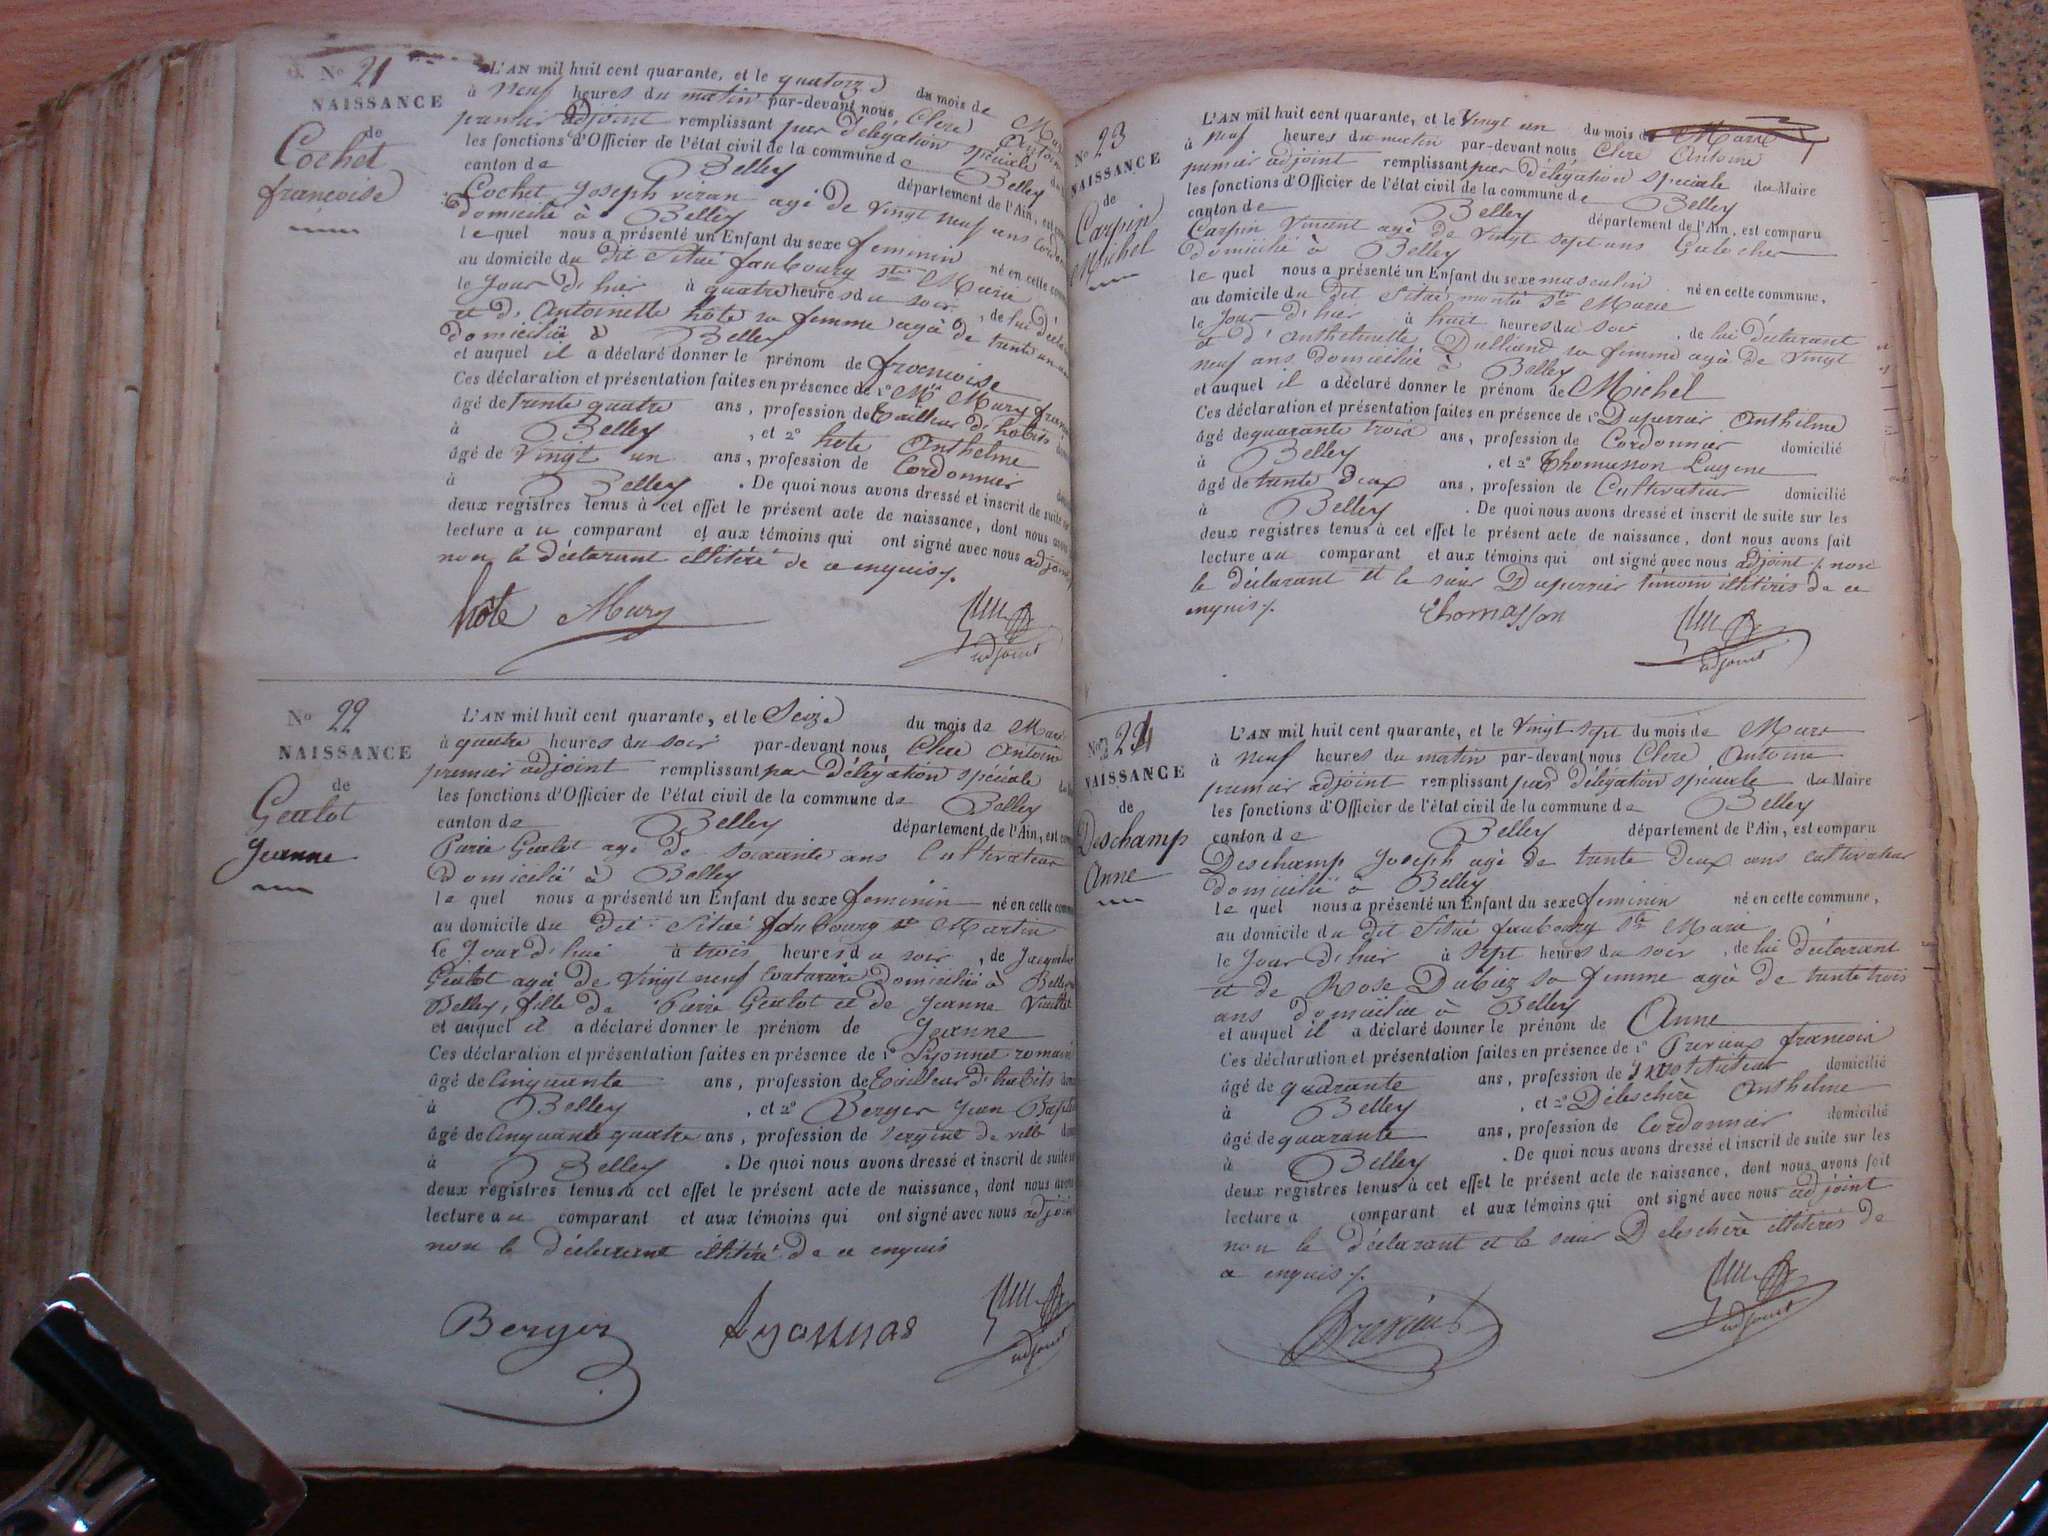 No 21
NAISSANCE
de
Cochet
françoise
L'AN mil huit cent quarante, et le quatorze du mois de
à neuf heures du matin par-devant nous Clerc
premier adjoint remplissant par délégation spéciale
les fonctions d'Officier de l'état civil de la commune de Belley
canton de Belley département de l'Ain, est
Cochet Joseph agé de vingt neuf ans
domicilié à Belley
le quel nous a présenté un Enfant du sexe feminin né en cette
au domicile du dit Situé faubourg ste Marie
le Jour d'hier à quatre heures du soir, de lui
et d'Antoinette hôte sa femme agée de trente un
domiciliée à Belley
et auquel il a déclaré donner le prénom de françoise
Ces déclaration et présentation faites en présence de 1° Mr Mury
âgé de trente quatre ans, profession de Tailleur d'habits
à Belley, et 2° hote Anthelme
âgé de Vingt un ans, profession de Cordonnier
à Belley. De quoi nous avons dressé et inscrit de suite
deux registres tenus à cet effet le présent acte de naissance, dont nous
lecture au comparant et aux témoins qui ont signé avec nous adjoint
non le déclarant illitéré de ce enquis
hôte Mury
adjoint
No 22
NAISSANCE
de
Gealot
Jeanne
L'AN mil huit cent quarante, et le Seize du mois de Mars
à quatre heures du soir par-devant nous Clerc Antoine
premier adjoint remplissant par délégation spéciale
les fonctions d'Officier de l'état civil de la commune de Belley
canton de Belley département de l'Ain, est
Pierre Gealot agé de soixante ans Cultivateur
domicilié à Belley
le quel nous a présenté un Enfant du sexe feminin né en cette
au domicile du dit Situé faubourg st Martin
le Jour d'hui à trois heures du soir, de
Gealot agée de Vingt neuf domiciliée à
Belley, fille de Pierre Gealot et de Jeanne
et auquel il a déclaré donner le prénom de Jeanne
Ces déclaration et présentation faites en présence de 1° Lyonnet romain
âgé de Cinquante ans, profession de Tailleur d'habits
à Belley, et 2° Berger Jean
âgé de Cinquante quatre ans, profession de Sergent de ville
à Belley. De quoi nous avons dressé et inscrit de suite
deux registres tenus à cet effet le présent acte de naissance, dont nous
lecture au comparant et aux témoins qui ont signé avec nous
non le déclarant illitéré de ce enquis
Berger
adjoint
No 23
NAISSANCE
de
Carpin
Michel
L'AN mil huit cent quarante, et le Vingt un du mois de Mars
à neuf heures du matin par-devant nous Clerc Antoine
premier adjoint remplissant par délégation spéciale du Maire
les fonctions d'Officier de l'état civil de la commune de Belley
canton de Belley département de l'Ain, est comparu
Carpin Vincent agé de Vingt sept ans Galocher
domicilié à Belley
le quel nous a présenté un Enfant du sexe masculin né en cette commune,
au domicile du dit Situé monté ste Marie
le Jour d'hier à huit heures du soir, de lui déclarant
et d'anthelmette Dalliand sa femme agée de Vingt
neuf ans domiciliée à Belley
et auquel il a déclaré donner le prénom de Michel
Ces déclaration et présentation faites en présence de 1° Duperrier Anthelme
âgé de quarante trois ans, profession de Cordonnier domicilié
à Belley, et 2° Thomasson
âgé de trente deux ans, profession de Cultivateur domicilié
à Belley. De quoi nous avons dressé et inscrit de suite sur les
deux registres tenus à cet effet le présent acte de naissance, dont nous avons fait
lecture au comparant et aux témoins qui ont signé avec nous adjoint non
le déclarant et le sieur Duperrier témoin illitérés de ce
enquis
Thomasson
adjoint
No 24
NAISSANCE
de
Deschamp
Anne
L'AN mil huit cent quarante, et le Vingt sept du mois de Mars
à neuf heures du matin par-devant nous Clerc Antoine
premier adjoint remplissant par délégation spéciale du Maire
les fonctions d'Officier de l'état civil de la commune de Belley
canton de Belley département de l'Ain, est comparu
Deschamp Joseph agé de trente deux ans cultivateur
domicilié à Belley
le quel nous a présenté un Enfant du sexe feminin né en cette commune,
au domicile du dit Situé faubourg ste Marie
le Jour d'hier à sept heures du soir, de lui déclarant
et de Rose Dubiez sa femme agée de trente trois
ans domiciliée à Belley
et auquel il a déclaré donner le prénom de Anne
Ces déclaration et présentation faites en présence de 1° françois
âgé de quarante ans, profession de Instituteur domicilié
à Belley, et 2° Déleschère Anthelme
âgé de quarante ans, profession de Cordonnier domicilié
à Belley. De quoi nous avons dressé et inscrit de suite sur les
deux registres tenus à cet effet le présent acte de naissance, dont nous avons fait
lecture a comparant et aux témoins qui ont signé avec nous adjoint
non le déclarant et le sieur Deleschère illitérés de
ce enquis
adjoint